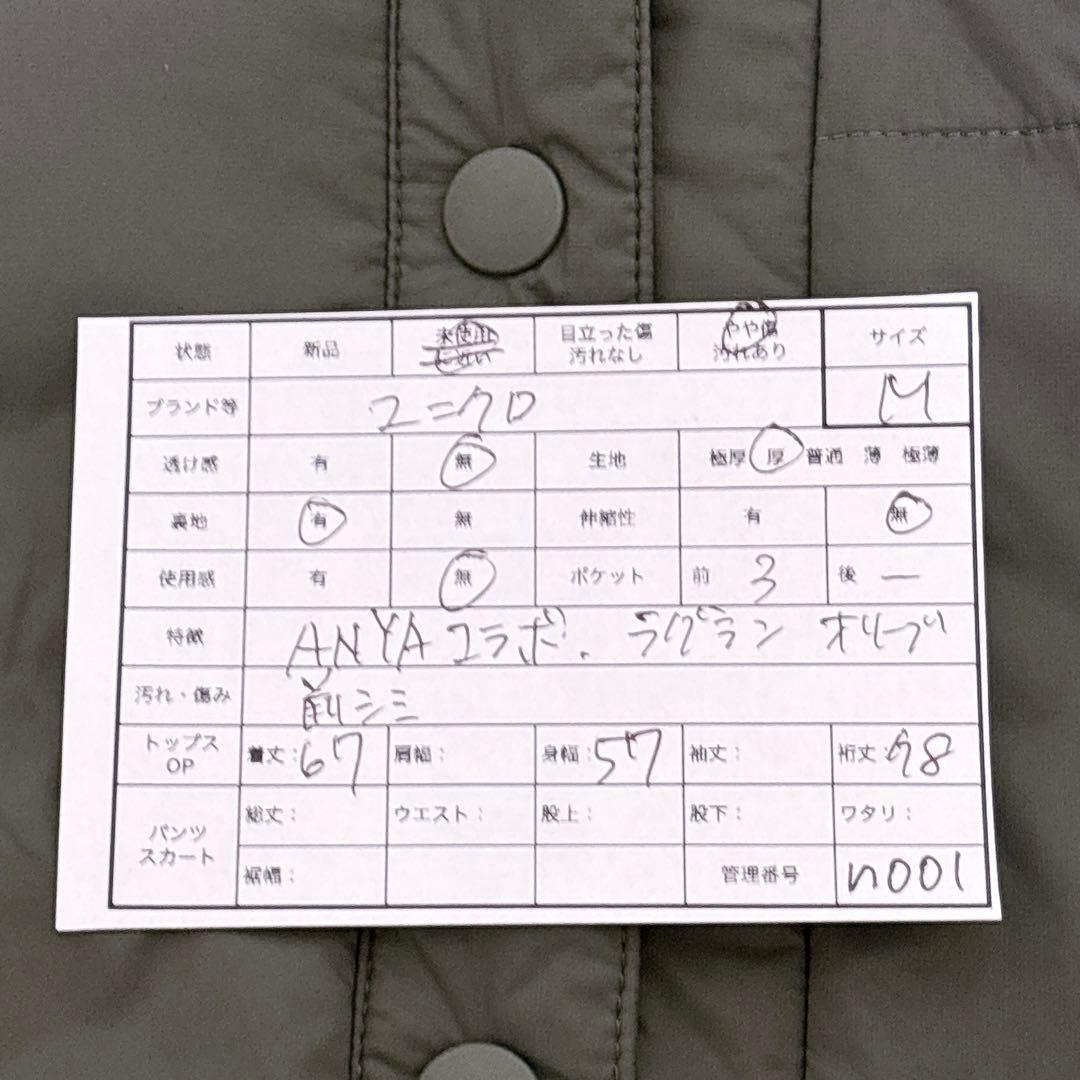 状態 新品 未使用に近い 目立った傷汚れなし やや傷汚れあり サイズ
ブランド等 ユニクロ M
透け感 有 無 生地 極厚 厚 普通 薄 極薄
裏地 有 無 伸縮性 有 無
使用感 有 無 ポケット 前 3 後 ー
特徴 ANYAコラボ. ラグラン オリーブ
汚れ・傷み 前シミ
トップス OP 着丈:67 肩幅: 身幅:57 袖丈: 裄丈:78
パンツ スカート 総丈: ウエスト: 股上: 股下: ワタリ:
裾幅: 管理番号 n001